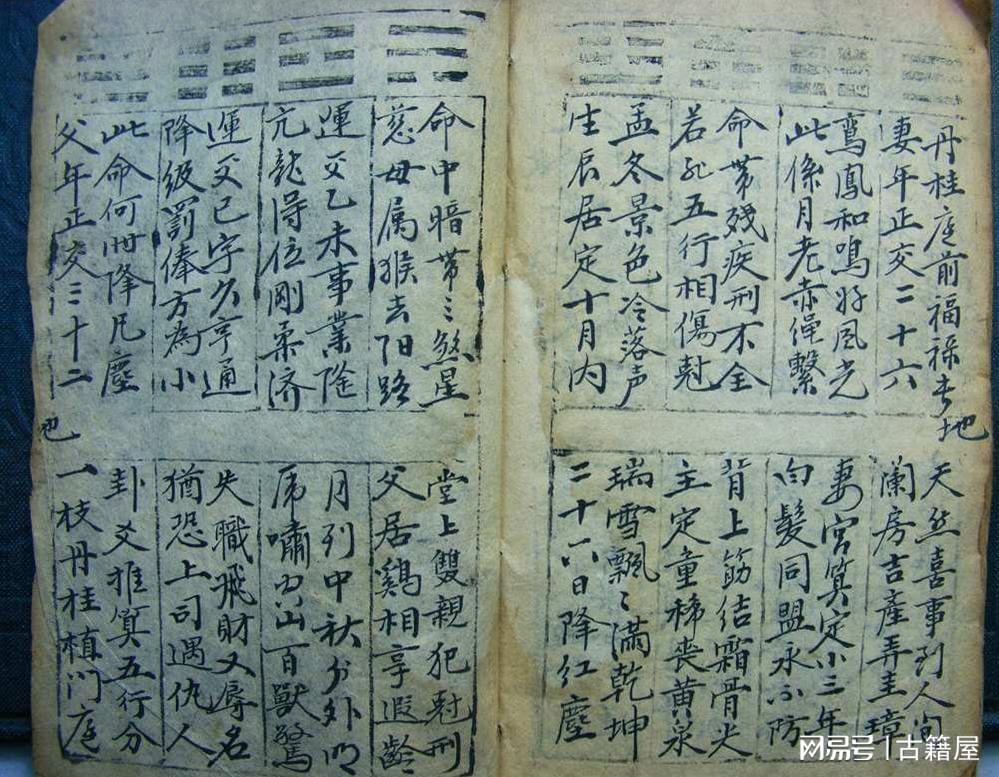 丹桂庭前福禄
地
天然喜事到人间
妻年正交二十六
蘭房吉產弄圭璋
鸞鳳和鳴好風光
妻宮算定小三年
此係月老赤繩繫
白髮同盟永不防
命带殘疾刑不全
背上筋结霜骨尖
若非五行相傷尅
主定童稀丧黄泉
孟冬景色冷落声
瑞雪飄〻滿乾坤
生辰居定十月内
二十六日降红塵
命中暗带三煞星
堂上雙親犯尅刑
慈母属猴去阳路
父居鷄相享遐齡
運交乙未事業隆
月到中秋分外明
亢龍得位剛柔济
虎嘯出山百獸驚
運交巳字久亨通
失職飛財又辱名
降级罰俸方為小
猶恐上司遇仇人
此命何世降凡塵
卦爻推算五行分
父年正交三十二
也
一枝丹桂植门庭
网易号 | 古籍屋